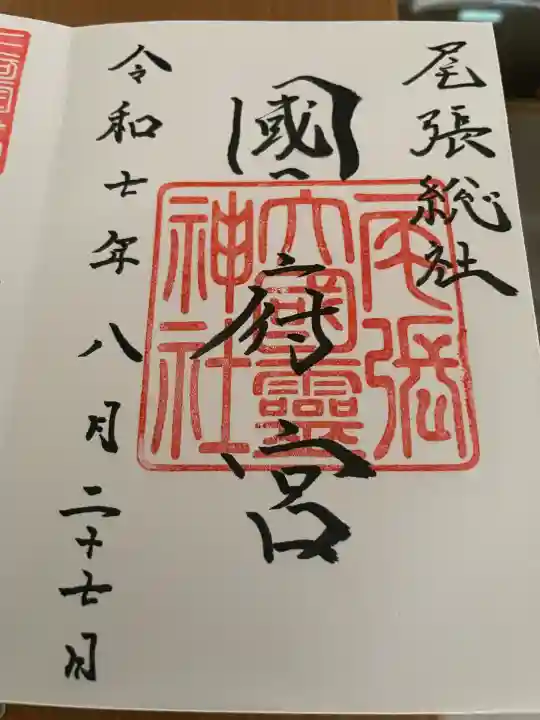 尾張総社
國府宮
尾張
大國靈
神社
令和七年八月二十七日